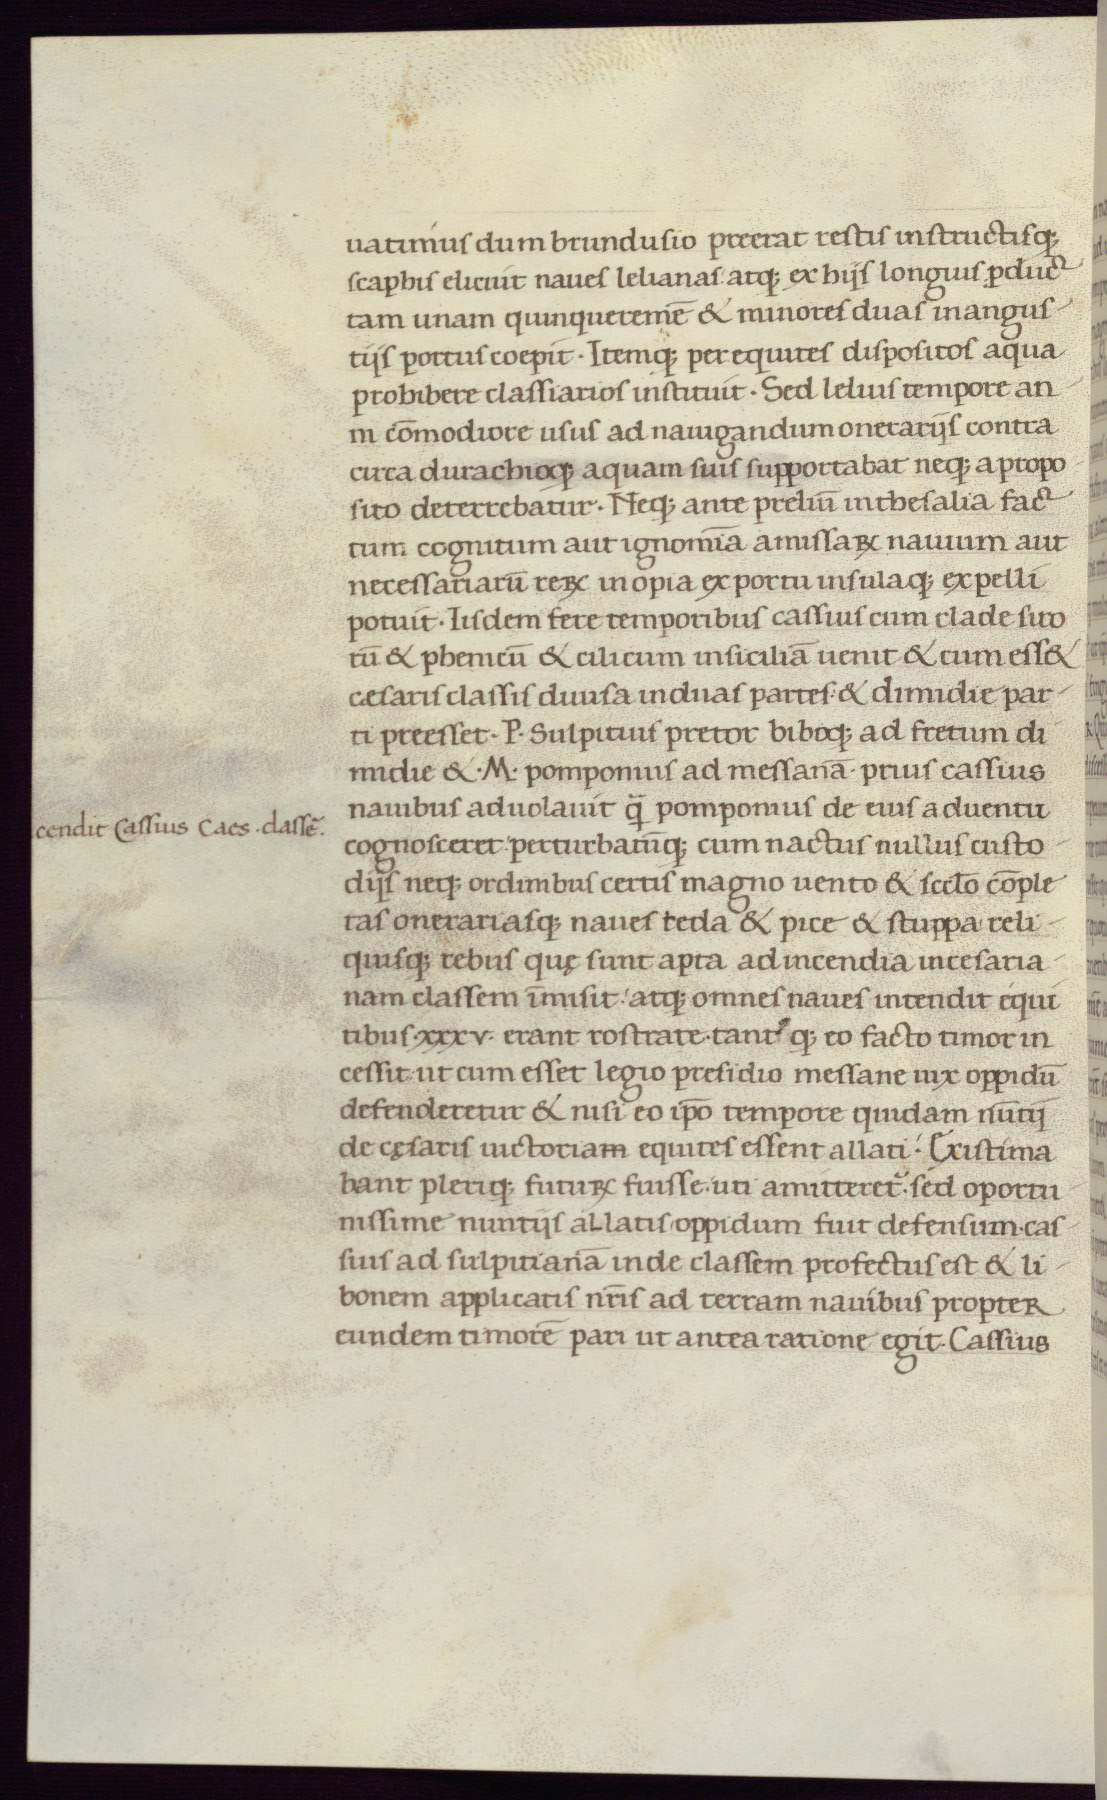 uatimus dum brundusio preerat restis instructisq;
scaphis elicuit naues lelianas atq; ex hijs longius ꝓduc
tam unam quinqueremē & minores duas in angus
tijs portus coepit · Itemq; per equites dispositos aqua
prohibere classiarios instituit · Sed lelius tempore an
ni cōmodiore usus ad nauigandum onerarijs contra
circa durachioq; aquam suis supportabat neq; a propo
sito deterrebatur · Neq; ante preliū in thesalia fac
tum cognitum aut ignomīa amissaꝝ nauium aut
necessariarū reꝝ inopia ex portu insulaq; expelli
potuit · Iisdem fere temporibus cassius cum clade siro
rū & phenicū & cilicum in siciliā uenit & cum ess&
cæsaris classis diuisa in duas partes · & dimidie par
ti preesset · P · Sulpitius pretor biboq; ad fretum di
midie & · M · pomponius ad messanā · prius cassius
nauibus aduolauit q̄ pomponius de eius aduentu
cendit Cassius Caes · classē.
cognosceret · perturbatūq; cum nactus nullus custo
dijs neq; ordinibus certis magno uento & scd̄o cōple
tas onerariasq; naues teda & pice & stuppa reli
quisq; rebus quę sunt apta ad incendia in cesaria
nam classem īmisit · atq; omnes naues intendit equi
tibus · xxxv · erant rostrate · tantq; eo facto timor in
cessit · ut cum esset legio presidio messane uix oppidū
defenderetur & nisi eo ip̄o tempore quidam nūtij
de cęsaris uictoriam equites essent allati · Existima
bant pleriq; futuꝝ fuisse · uti amitteret᷑ · sed oportu
nissime nuntijs allatis oppidum fuit defensum · cas
sius ad sulpitianā inde classem profectus est & li
bonem applicatis nr̄is ad terram nauibus propter
eundem timorē pari ut antea ratione egit · Cassius